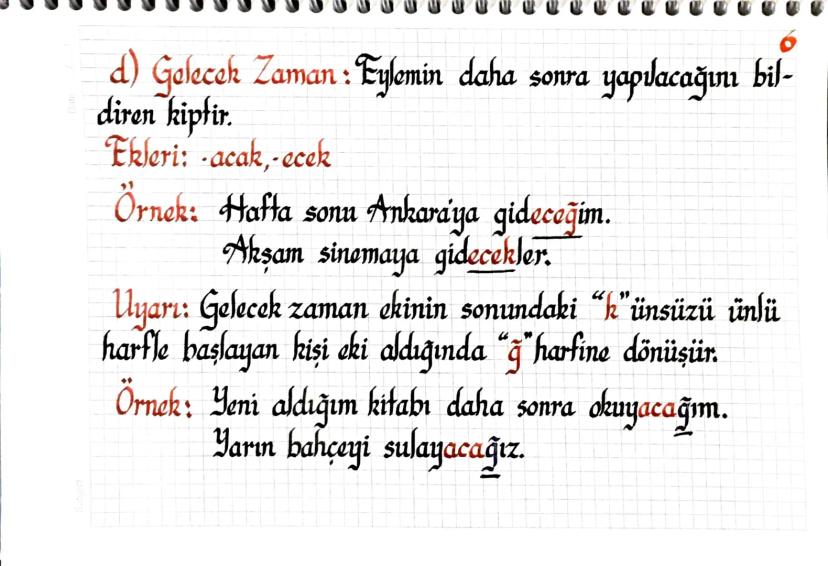 6
d) Gelecek Zaman: Eylemin daha sonra yapılacağını bil-
diren kiptir.
Ekleri: -acak, -ecek
Örnek: Hafta sonu Ankara'ya gideceğim.
Akşam sinemaya gidecekler.
Uyarı: Gelecek zaman ekinin sonundaki "k" ünsüzü ünlü
harfle başlayan kişi eki aldığında "ğ" harfine dönüşür.
Örnek: Yeni aldığım kitabı daha sonra okuyacağım.
Yarın bahçeyi sulayacağız.